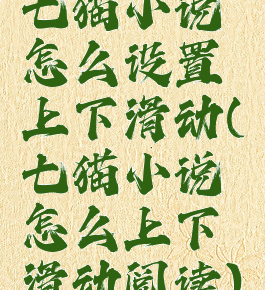 七猫小说
怎么设置
上下滑动(
七猫小说
怎么上下
滑动阅读)